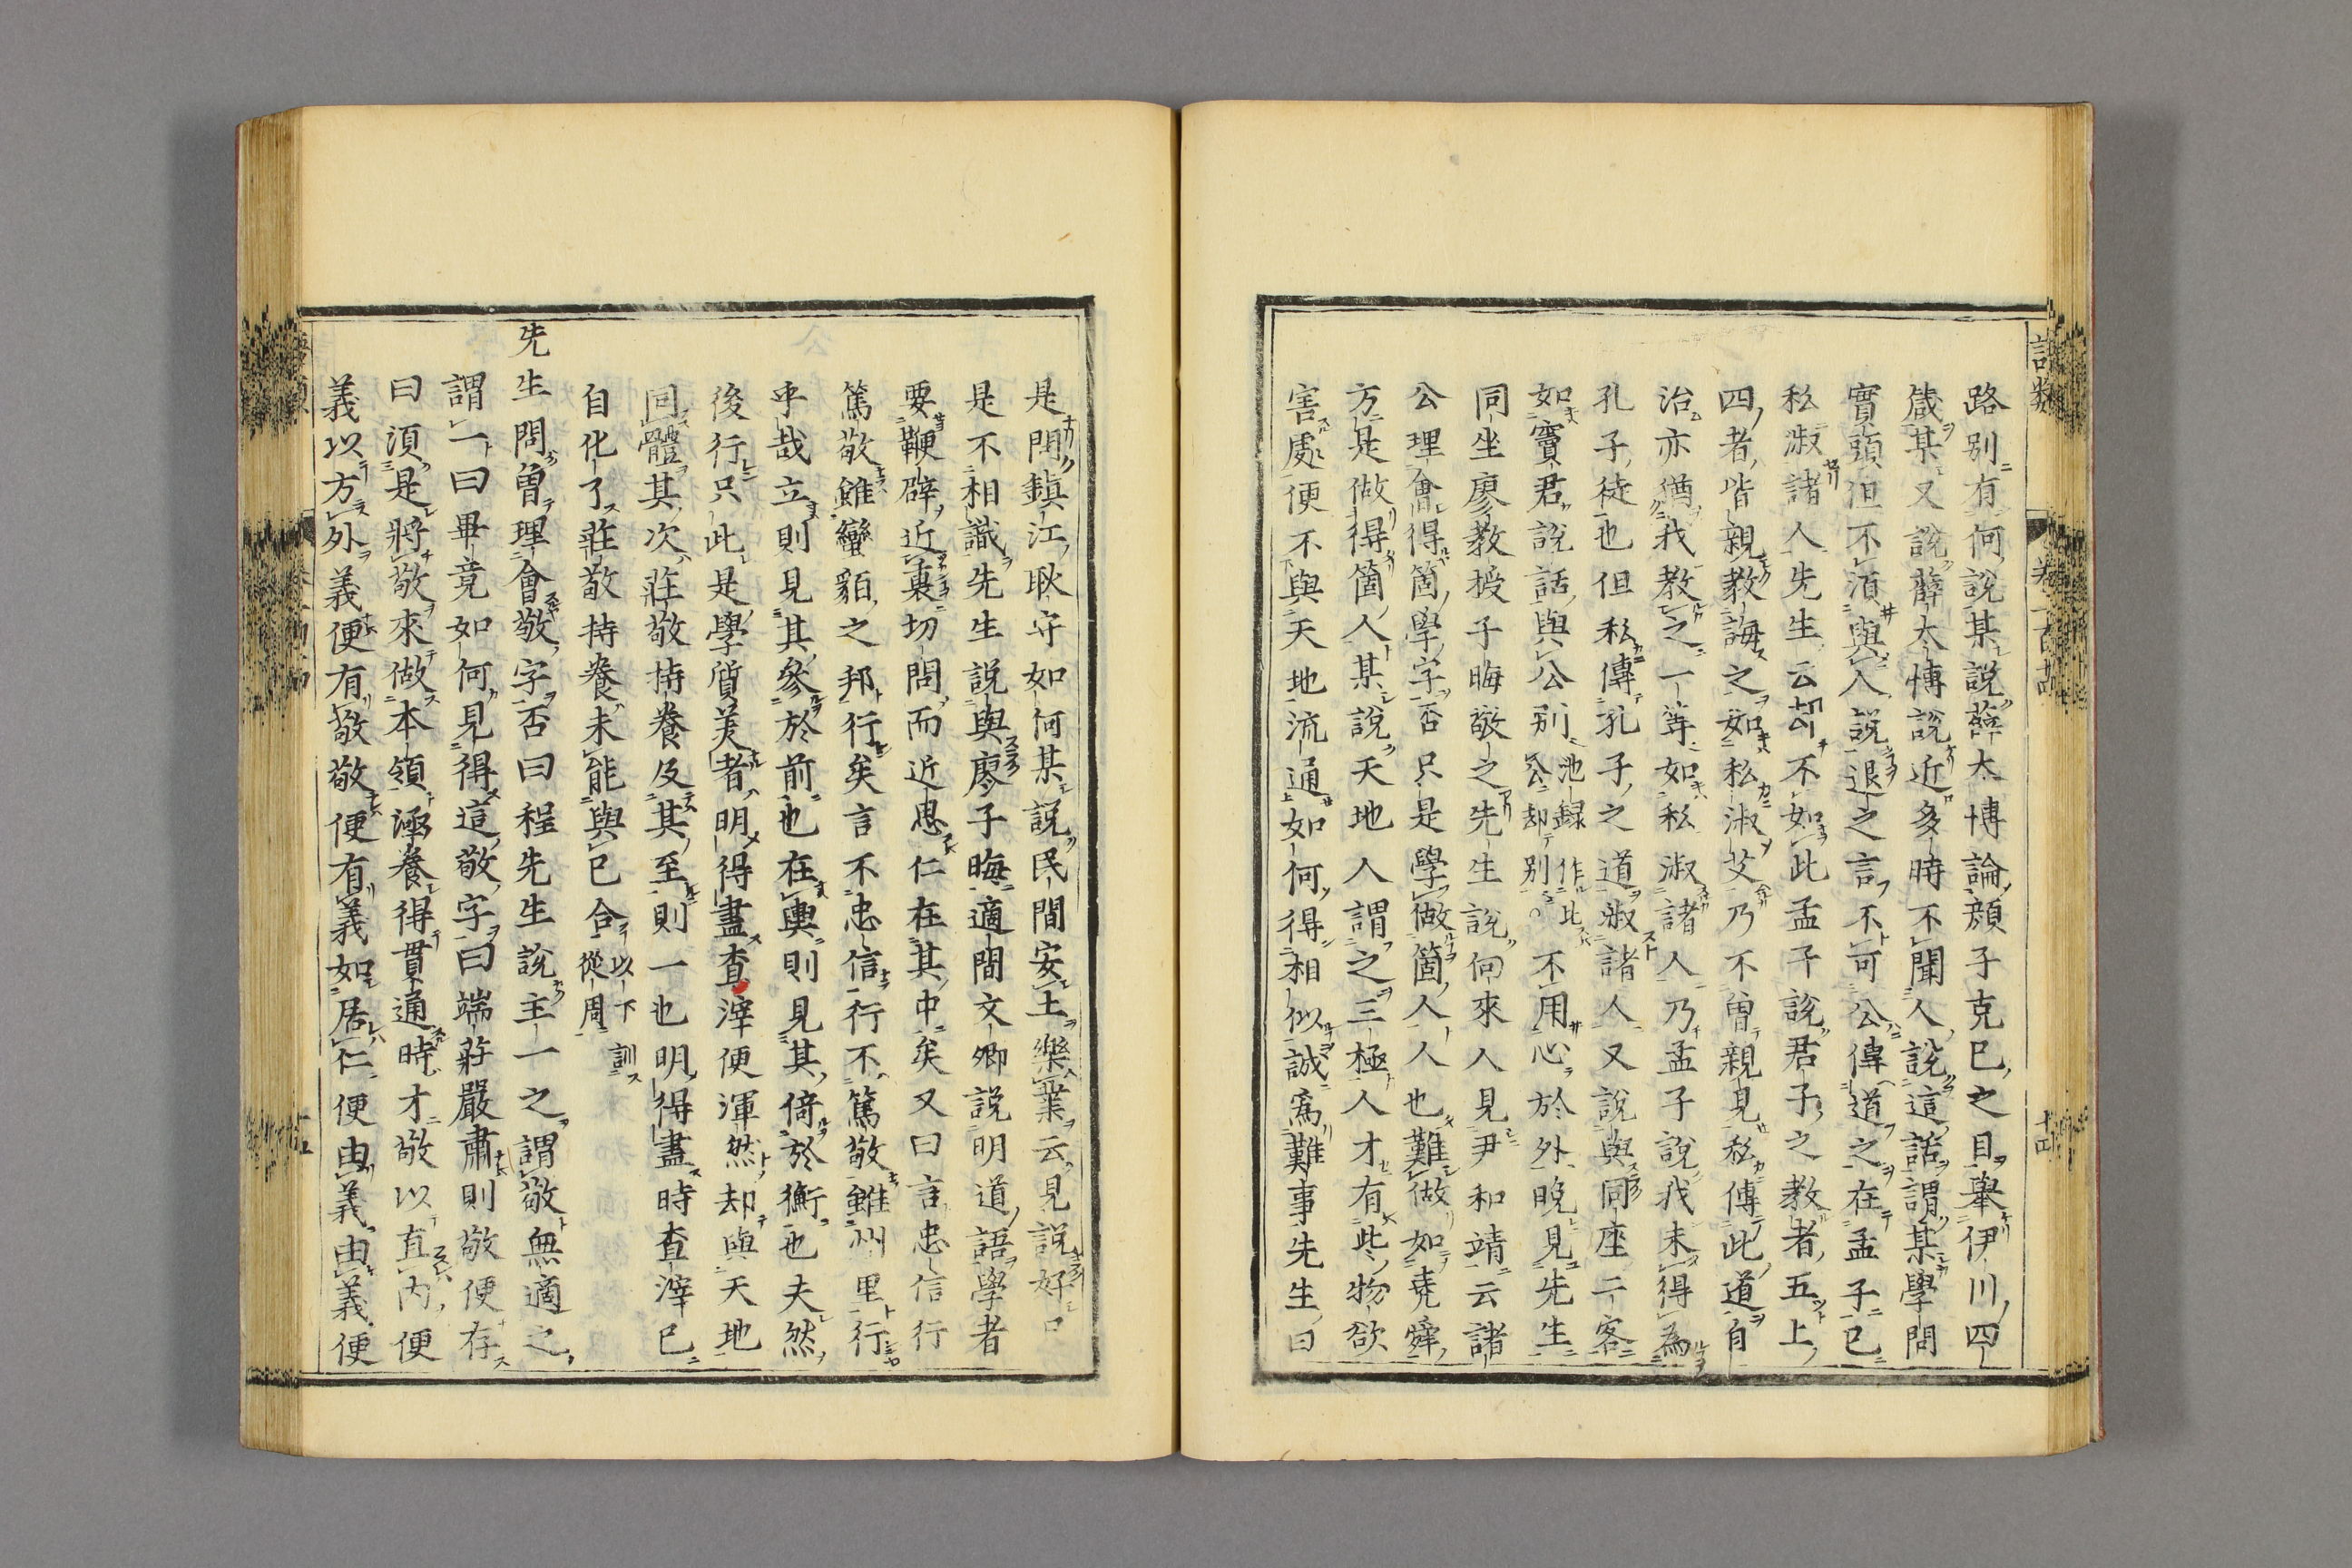 路别有何說某說薛太博論顏子克已之目舉伊川四
箴某又說薛太博說近多時不聞人說這話謂某學問
實頭但不須與人說退之言不可公傳道之在孟子已
私淑諸人先生云却不如此孟子說君子之教者五上
四者皆親教誨之如私淑艾乃不曾親見私傳此道自
治亦猶我教之一等如私淑諸人乃孟子說我未得為
孔子徒也但私傳孔子之道淑諸人又說與同座二客
如竇君說話與公别池録作此公却别不用心於外晚見先生
同坐廖教授子晦敬之先生說向來人見尹和靖云諸
公理會得箇學字否只是學做箇人人也難做如堯舜
方是做得箇人某說天地人謂之三極人才有此物欲
害處便不與天地流通如何得相似誠爲難事先生曰
是問鎮江耿守如何某說民間安土樂業云見說好只
是不相識先生說與廖子晦適間文卿説明道語學者
要鞭辟近裏切問而近思仁在其中矣又曰言忠信行
篤敬雖蠻貊之邦行矣言不忠信行不篤敬雖州里行
乎哉立則見其參於前也在輿則見其倚於衡也夫然
後行只此是學質美者明得盡査滓便渾然却與天地
同體其次莊敬持養及其至則一也明得盡時査滓已
自化了莊敬持養未能與已合以下訓從周
先生問曾理會敬字否曰程先生說主一之謂敬無適之
謂一曰畢竟如何見得這敬字曰端莊嚴肅則敬便存
曰須是將敬來做本領涵養得貫通時才敬以直内便
義以方外義便有敬敬便有義如居仁便由義由義便